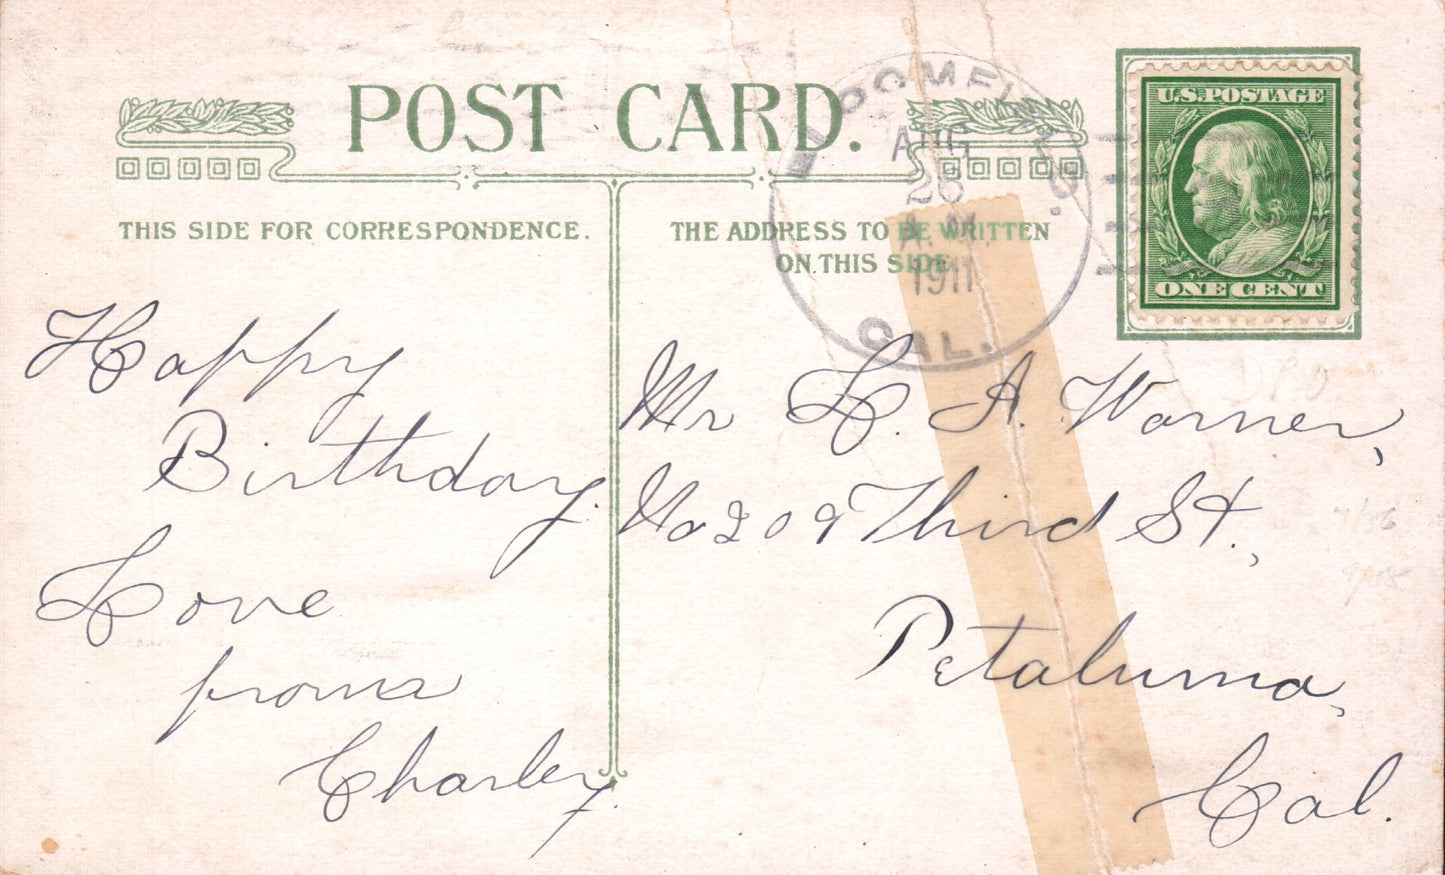 POST CARD.
THIS SIDE FOR CORRESPONDENCE.
THE ADDRESS TO BE WRITTEN
ON THIS SIDE
BLOOMFIELD
AUG
26
A.M.
1911
CAL.
U.S. POSTAGE
ONE CENT
Happy
Birthday.
Love
from
Charley.
Mr L. A. Warner,
No 209 Third St.,
Petaluma,
Cal.
DPO
9/58